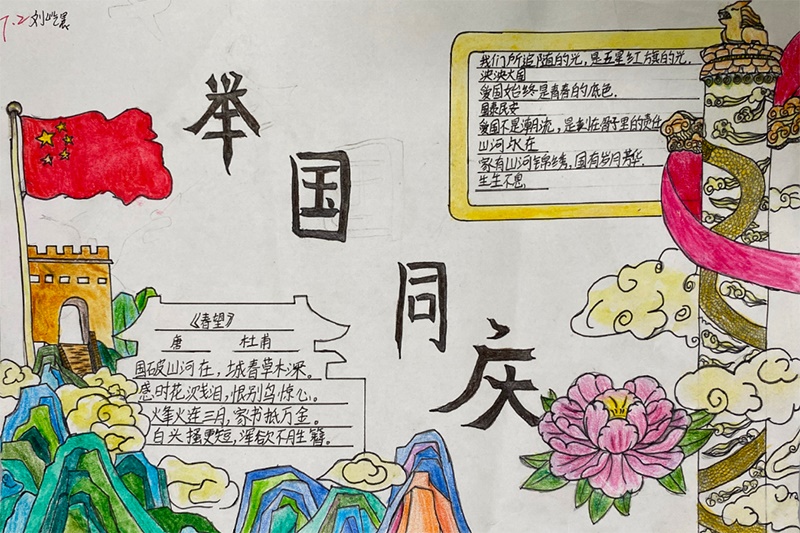 7.2 刘屹晨
举国同庆
我们所追随的光，是五星红旗的光。
泱泱大国
爱国始终是青春的底色。
国泰民安
爱国不是潮流，是刻在骨子里的责任
山河永在
家有山河锦绣，国有岁月芳华.
生生不息
《春望》
唐 杜甫
国破山河在，城春草木深。
感时花溅泪，恨别鸟惊心。
烽火连三月，家书抵万金。
白头搔更短，浑欲不胜簪。